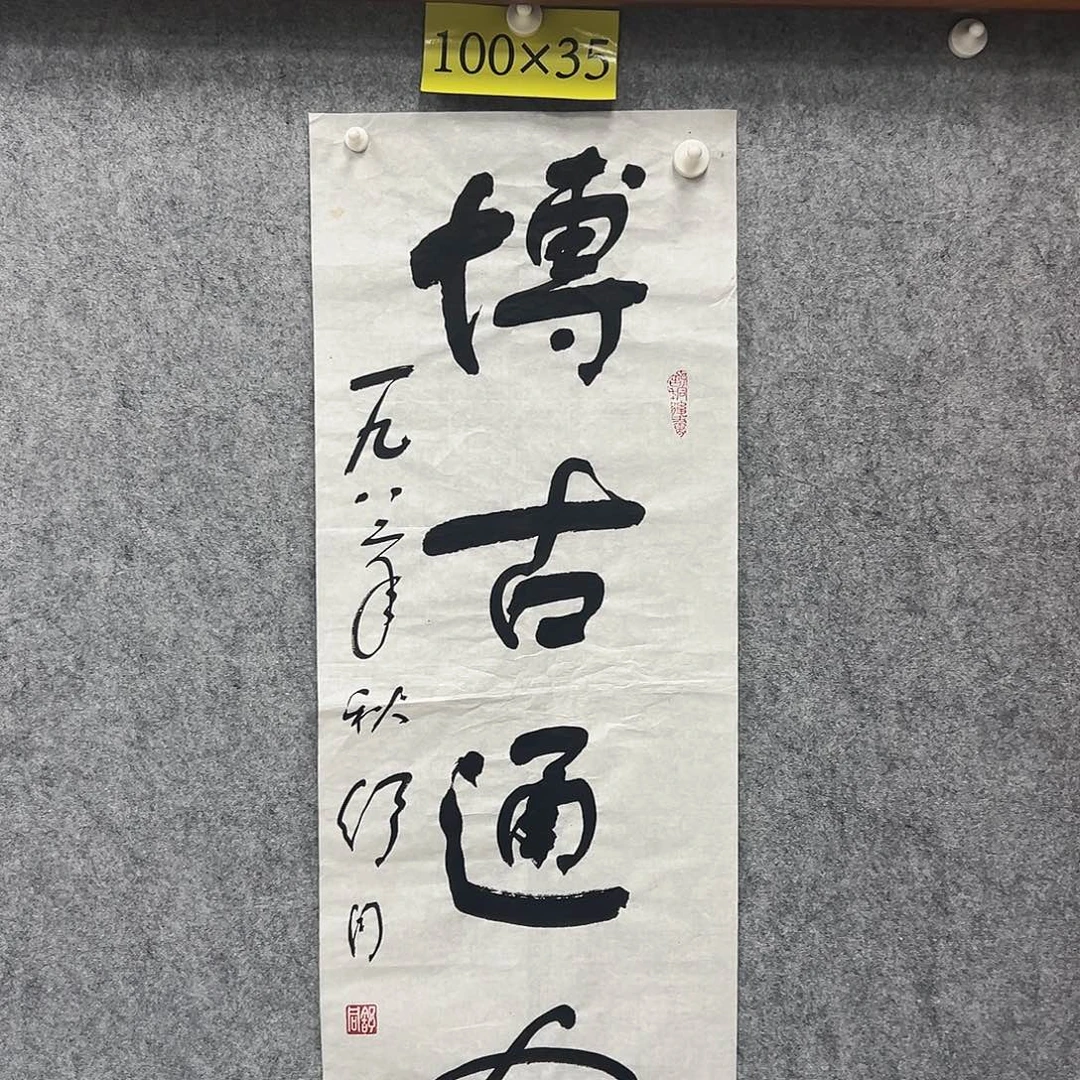 博古通
一九八二年秋舒同
舒同
100×35